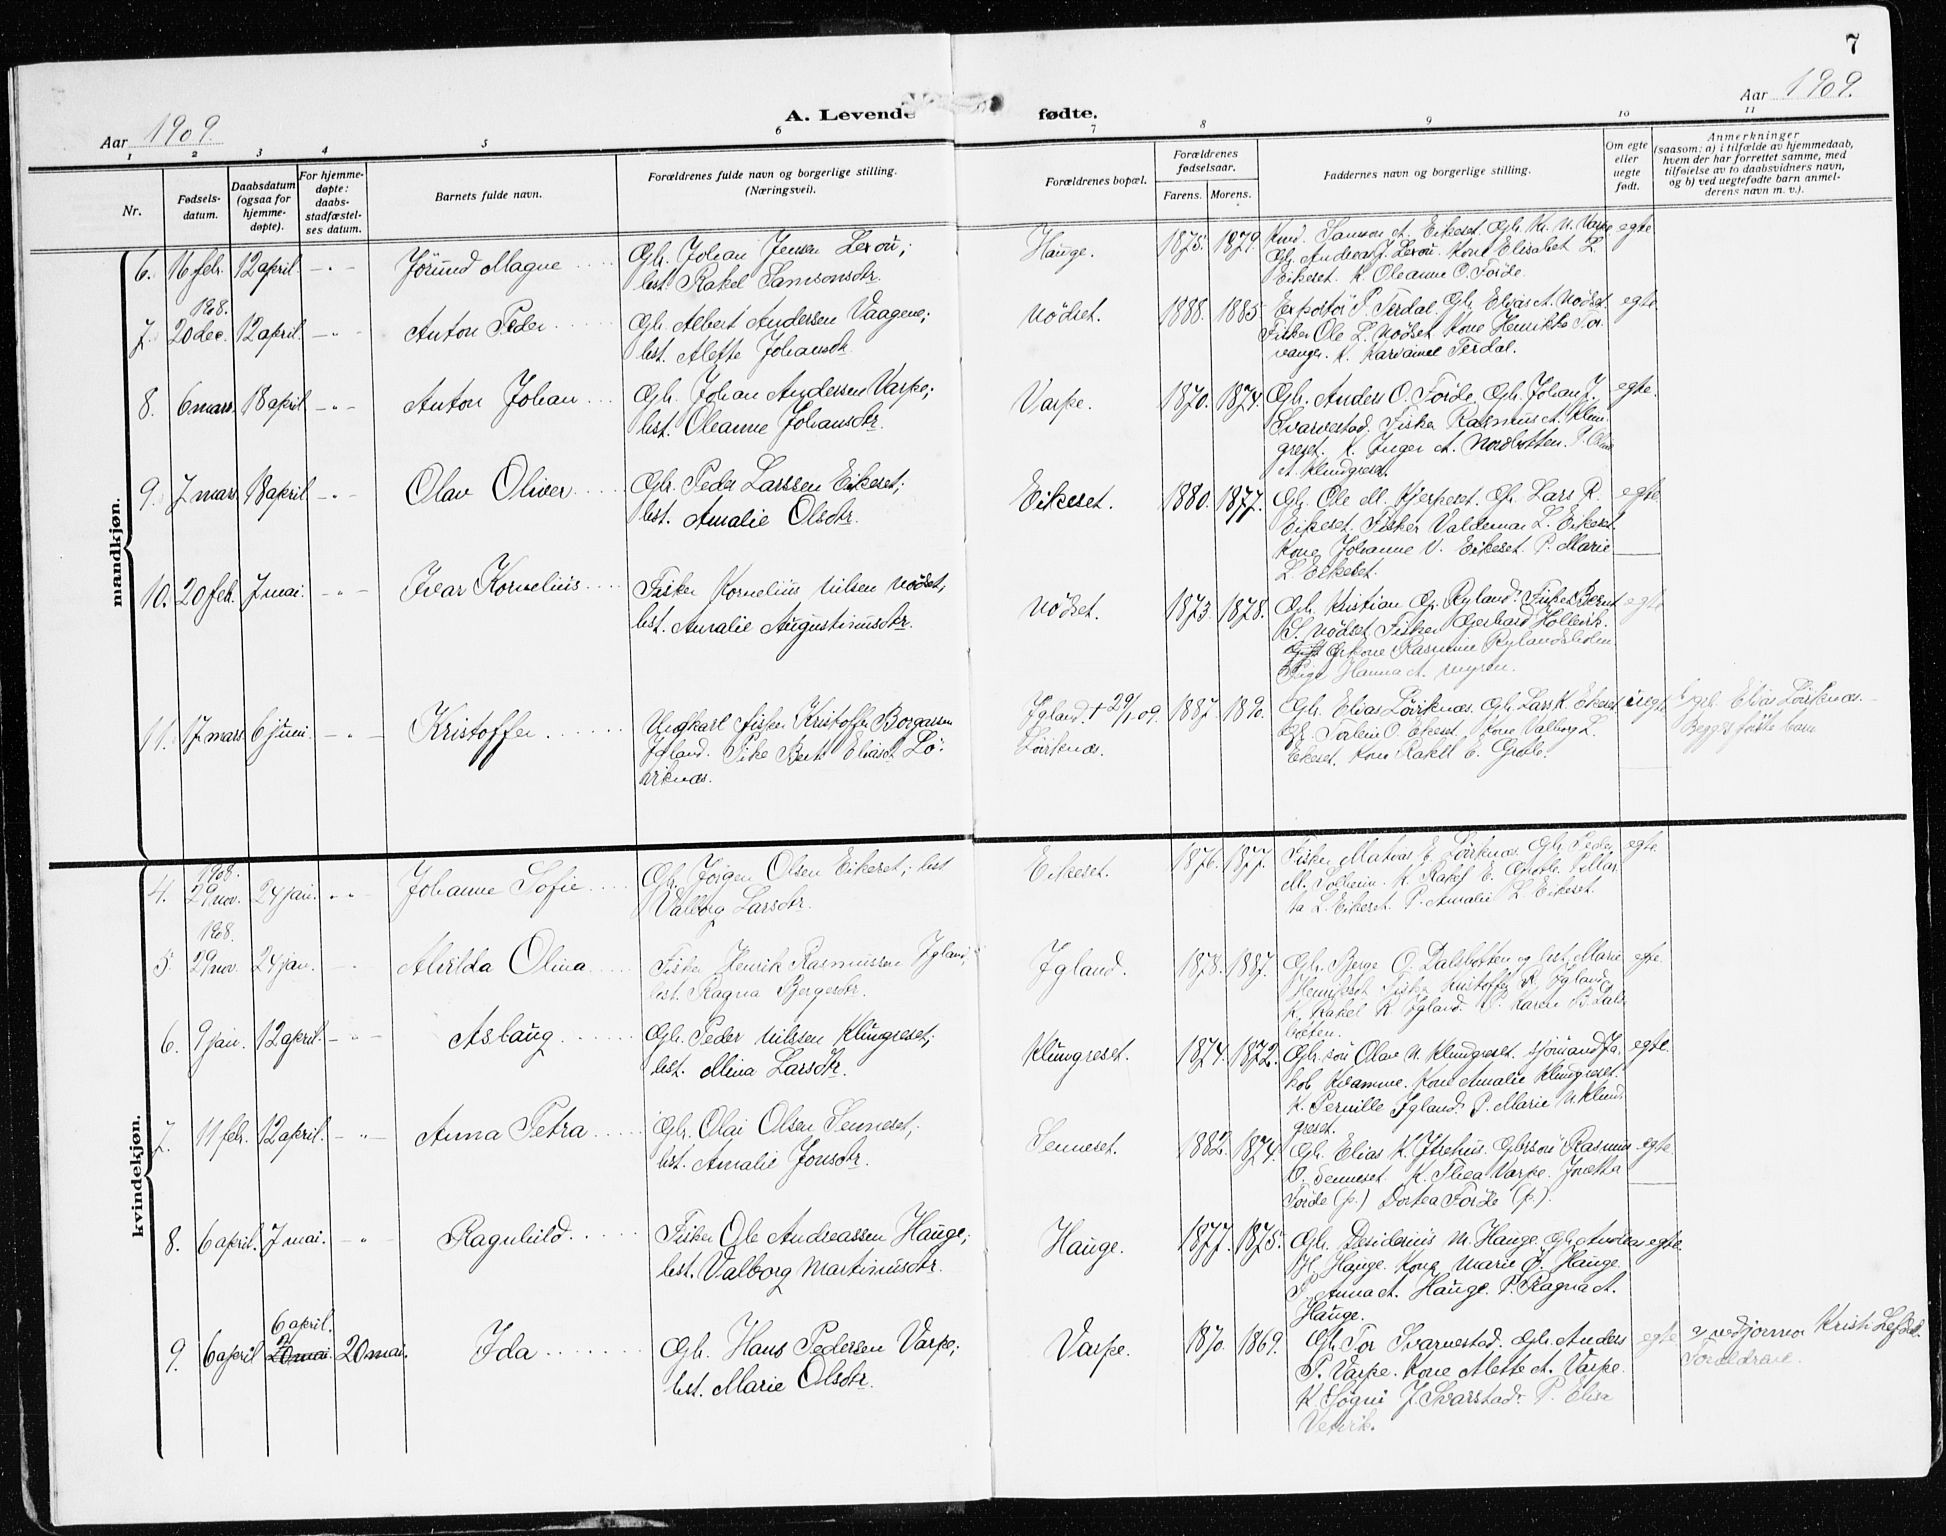 7
Aar 1909.
A. Levende fødte.
Aar 1909.
1 2 3 4 5 6 7 8 9 10 11
Nr.
Fødselsdatum.
Daabsdatum
(ogsaa for
hjemmedøpte).
For hjemmedøpte:
daabsstadfæstelses datum.
Barnets fulde navn.
Forældrenes fulde navn og borgerlige stilling.
(Næringsvei).
Forældrenes bopæl.
Forældrenes
fødselsaar.
Farens. Morens.
Faddernes navn og borgerlige stilling.
Om egte
eller
uegte
født.
Anmerkninger
(saasom: a) i tilfælde av hjemmedaab,
hvem der har forrettet samme, med
tilføielse av to daabsvidners navn,
og b) ved uegtefødte barn anmelderens navn m. v.).
mandkjøn.
6. 16 febr. 12 april. - " - Jörund Magne
Gbr. Johan Jensen Leroü;
hst. Rakel Samsonsdtr.
Hauge. 1875. 1879.
Eikeset. K. Oleanne O. Förde.
egte
7. 1908. 20 dec. 12 april. - " - Anton Peder
Gbr. Albert Andersen Vaagene;
hst. Alette Johansdtr.
Nödset. 1888. 1885.
Fisker Ole L. Nödset Kone Henrikke
egte
8. 6 mars. 18 april - " - Anton Johan
Gbr. Johan Andersen Varpe;
hst. Oleanne Johansdtr.
Varpe. 1870. 1874.
Gbr. Anders O. Förde, Gbr. Johan J.
Svarvestad. Fisker Rasmus A. Klungreset. K. Inger A. Nordbotten. P.
A. Klungreset.
egte.
9. 7 mars 18 april - " - Olav Oliver
Gbr. Peder Larssen Eikeset;
hst. Amalie Olsdtr.
Eikeset. 1880. 1877.
Gbr. Ole M. Hjerpeset. Gbr. Lars R.
Eikeset. Fisker Valdemar L. Eikeset.
Kone Johanne V. Eikeset. P. Marie
L. Eikeset.
egte
10. 20 feb. 7 mai. - " - Ivar Kornelius
Fisker Kornelius Nilsen Nödset,
hst. Amalie Augustinusdtr.
Nödset. 1873. 1878.
Gbr. Kristian Ryland. Fisker Bernt
S. Nödset Fisker Gerhard Hollevik.
Kone Rasmine Rylandsholm.
Pige Hanna A. Myren.
egte
11. 17 mars 6 juni - " - Kristoffer
Ungkarl Fisker Kristoffer Borgassen
Igland. Pike Berte Eliasdtr Löviknæs.
Igland. † 29/1 09.
Löviknæs.
1887. 1890.
Gbr. Elias Löviknæs. Gbr. Lars K. Eikeset
Gbr. Torleiv O. Eikeset. Kone Valborg L.
Eikeset. Kone Rakel E. Grotle.
uegte
Gbr. Elias Löviknæs.-
Begges förste barn
kvindekjøn.
4. 1908. 29 nov. 24 jan. " " Johanne Sofie
Gbr. Jörgen Olsen Eikeset; hst
Valborg Larsdtr.
Eikeset. 1876. 1877.
Fisker Matias E. Löviknæs Gbr. Peder
M. Solheim. K. Rakel E. Grotle. P. Marta L. Eikeset. P. Amalie L. Eikeset.
egte
5. 1908. 29 nov. 24 jan. - " - Alvilda Olina
Fisker Henrik Rasmussen Igland;
hst. Ragna Bergesdtr.
Igland. 1878. 1887.
Gbr. Berge O. Dalsbotten og hst. Marie
Henriksdtr Fisker Kristoffer R. Igland
K. Rakel K. Igland. P. Karen B. Dalsbotten.
egte.
6. 9 jan. 12 april. - " - Aslaug
Gbr. Peder Nilssen Klungreset;
hst. Mina Larsdtr.
Klungreset. 1874. 1872.
Gbr. sön Olav N. Klungreset. Sjömand Jakob Kvamme. Kone Amalie Klungreset.
K. Pernille Igland. P. Marie N. Klungreset.
egte.
7. 11 febr. 12 april. - " - Anna Petra
Gbr. Olai Olsen Senneset;
hst. Amalie Jonsdtr.
Senneset. 1882. 1874.
Gbr. Elias K. Ytrehus. Gbrsön Rasmus
O. Senneset. K. Thea Varpe. Jonetta
Förde (p.) Dortea Förde (p).
egte.
8. 6 april. 7 mai. - " - Ragnhild
Fisker Ole Andreassen Hauge;
hst. Valborg Martinusdtr.
Hauge. 1877. 1875.
Gbr. Desiderius M. Hauge. Gbr. Andreas
H. Hauge. Kone Marie Ø. Hauge.
P. Anna A. Hauge. P. Ragna A.
Hauge.
egte.
9. 6 april 6 april. 20 mai. 20 mai. Ida
Gbr. Hans Pedersen Varpe;
hst. Marie Olsdtr.
Varpe. 1870. 1869.
Gbr. Tor Svarvestad. Gbr. Anders
P. Varpe. Kone Alette A. Varpe.
K. Søgni J. Svarstad. P. Elisa
Vetvik.
egte
av nødjormor Kristi
Foreldrene.